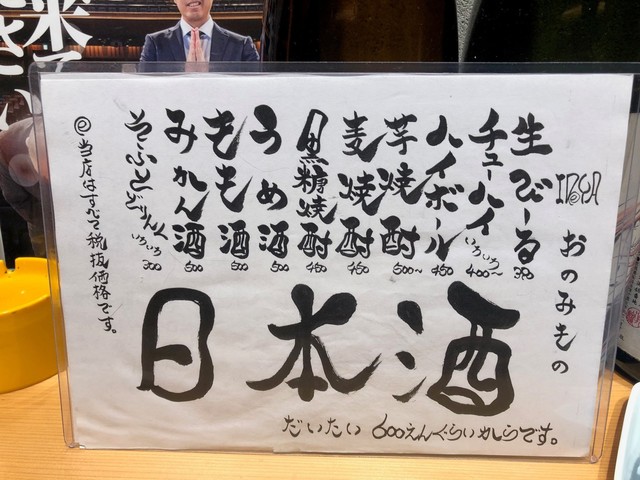 IZUYA おのみもの
生びーる 390
チューハイ いろいろ 400〜
ハイボール 450
芋焼酎 500〜
麦焼酎 450
黒糖焼酎 450
うめ酒 500
もも酒 500
みかん酒 500
そふとどりんく いろいろ 300
日本酒
だいたい 600えんぐらいからです。
@当店はすべて税抜価格です。